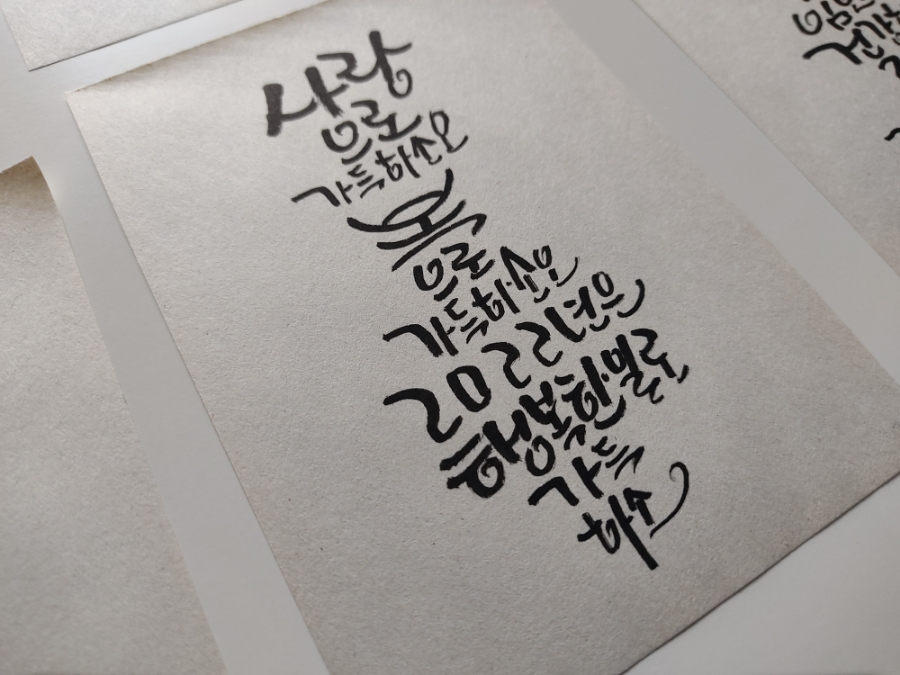 사랑
으로
가득하소오
복
으로
가득하소오
2022년은
행복한일루
가득
하소